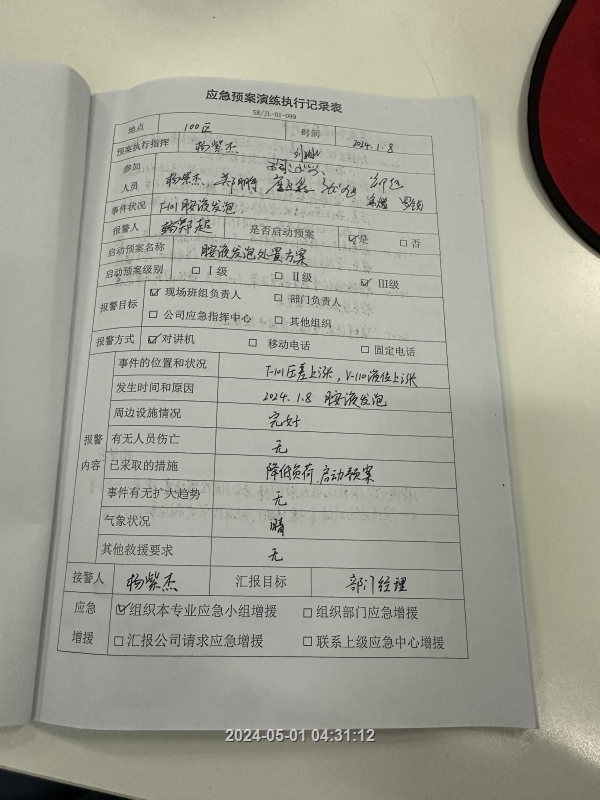 应急预案演练执行记录表
SR/JL-01-099
地点 100区 时间 2024.1.8
预案执行指挥 杨紫杰
参加人员 杨紫杰、
事件状况 T-101胺液发泡
报警人 是否启动预案 ☑是 □否
启动预案名称 胺液发泡处置方案
启动预案级别 □Ⅰ级 □Ⅱ级 ☑Ⅲ级
报警目标 ☑现场班组负责人 □部门负责人
□公司应急指挥中心 □其他组织
报警方式 ☑对讲机 □移动电话 □固定电话
报警内容
事件的位置和状况 T-101压差上涨，V-110液位上涨
发生时间和原因 2024.1.8 胺液发泡
周边设施情况 完好
有无人员伤亡 无
已采取的措施 降低负荷.启动预案
事件有无扩大趋势 无
气象状况 晴
其他救援要求 无
接警人 杨紫杰 汇报目标 部门经理
应急增援 ☑组织本专业应急小组增援 □组织部门应急增援
□汇报公司请求应急增援 □联系上级应急中心增援
2024-05-01 04:31:12